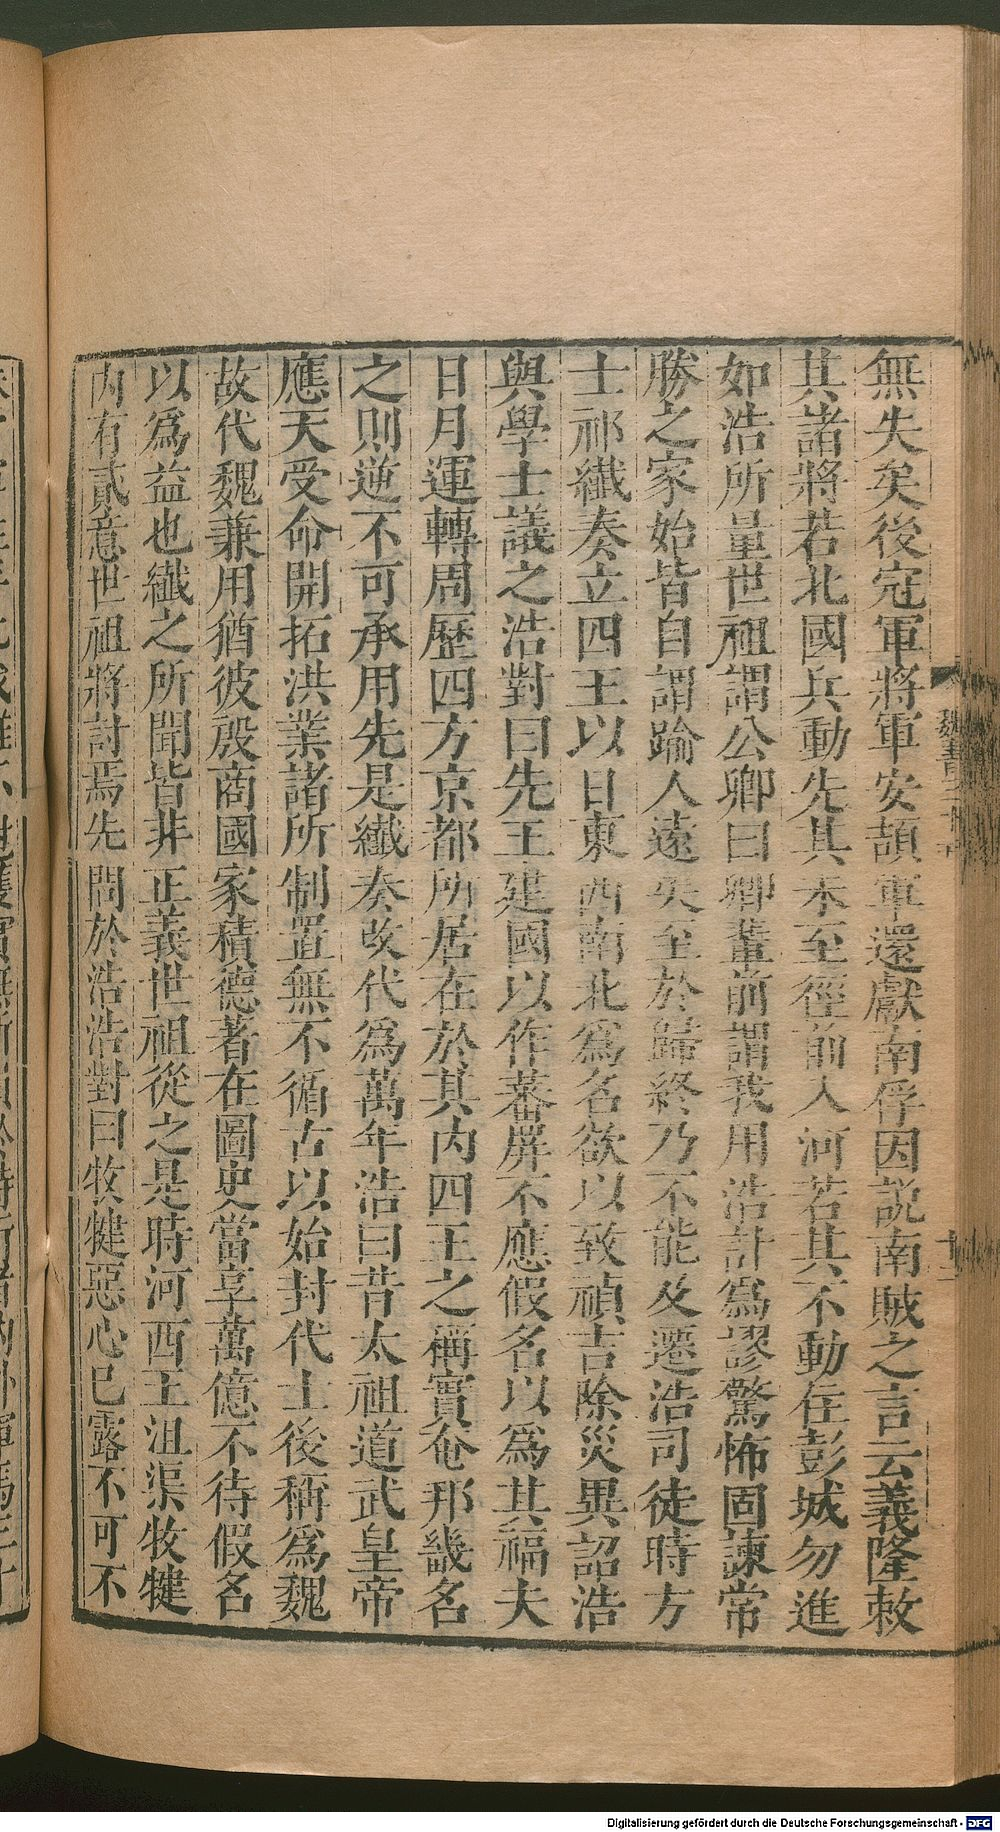 無失矣後冠軍將軍安頡軍還獻南俘因説南賊之言云義隆敕
其諸將若北國兵動先其未至徑前入河若其不動住彭城勿進
如浩所量世祖謂公卿曰卿輩前謂我用浩計爲謬驚怖固諫常
勝之家始皆自謂踰人遠矣至於歸終乃不能及遷浩司徒時方
士祁纖奏立四王以日東西南北爲名欲以致禎吉除災異詔浩
與學士議之浩對曰先王建國以作蕃屏不應假名以爲其福夫
日月運轉周歷四方京都所居在於其内四王之稱實奄邦畿名
之則逆不可承用先是纖奏改代爲萬年浩曰昔太祖道武皇帝
應天受命開拓洪業諸所制置無不循古以始封代土後稱爲魏
故代魏兼用猶彼殷商國家積德著在圖史當享萬億不待假名
以爲益也纖之所聞皆非正義世祖從之是時河西王沮渠牧犍
内有貳意世祖將討焉先問於浩浩對曰牧犍惡心已露不可不
Digitalisierung gefördert durch die Deutsche Forschungsgemeinschaft - DFG